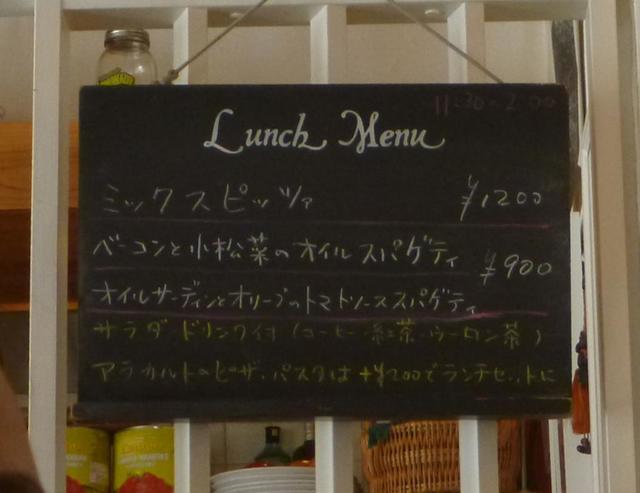 11:30-2:00
Lunch Menu
ミックスピッツァ ¥1200
ベーコンと小松菜のオイルスパゲティ ¥900
オイルサーディンとオリーブのトマトソーススパゲティ
サラダ・ドリンク付(コーヒー・紅茶・ウーロン茶)
アラカルトのピザ・パスタは+¥200でランチセットに